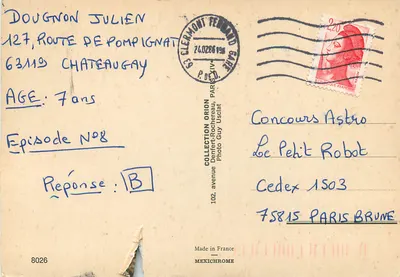 DOUGNON JULIEN
127, ROUTE DE POMPIGNAT
63119 CHATEAUGAY
AGE : 7 ans
Episode N°8
Réponse : B
8026
63 CLERMONT FERRAND GARE
P. DE D.
COLLECTION ORION
102, avenue Denfert-Rochereau, PARIS
Photo Guy Usclat
Made in France
MEXICHROME
2,20
Concours Astro
Le Petit Robot
Cedex 1503
75815 PARIS BRUNE